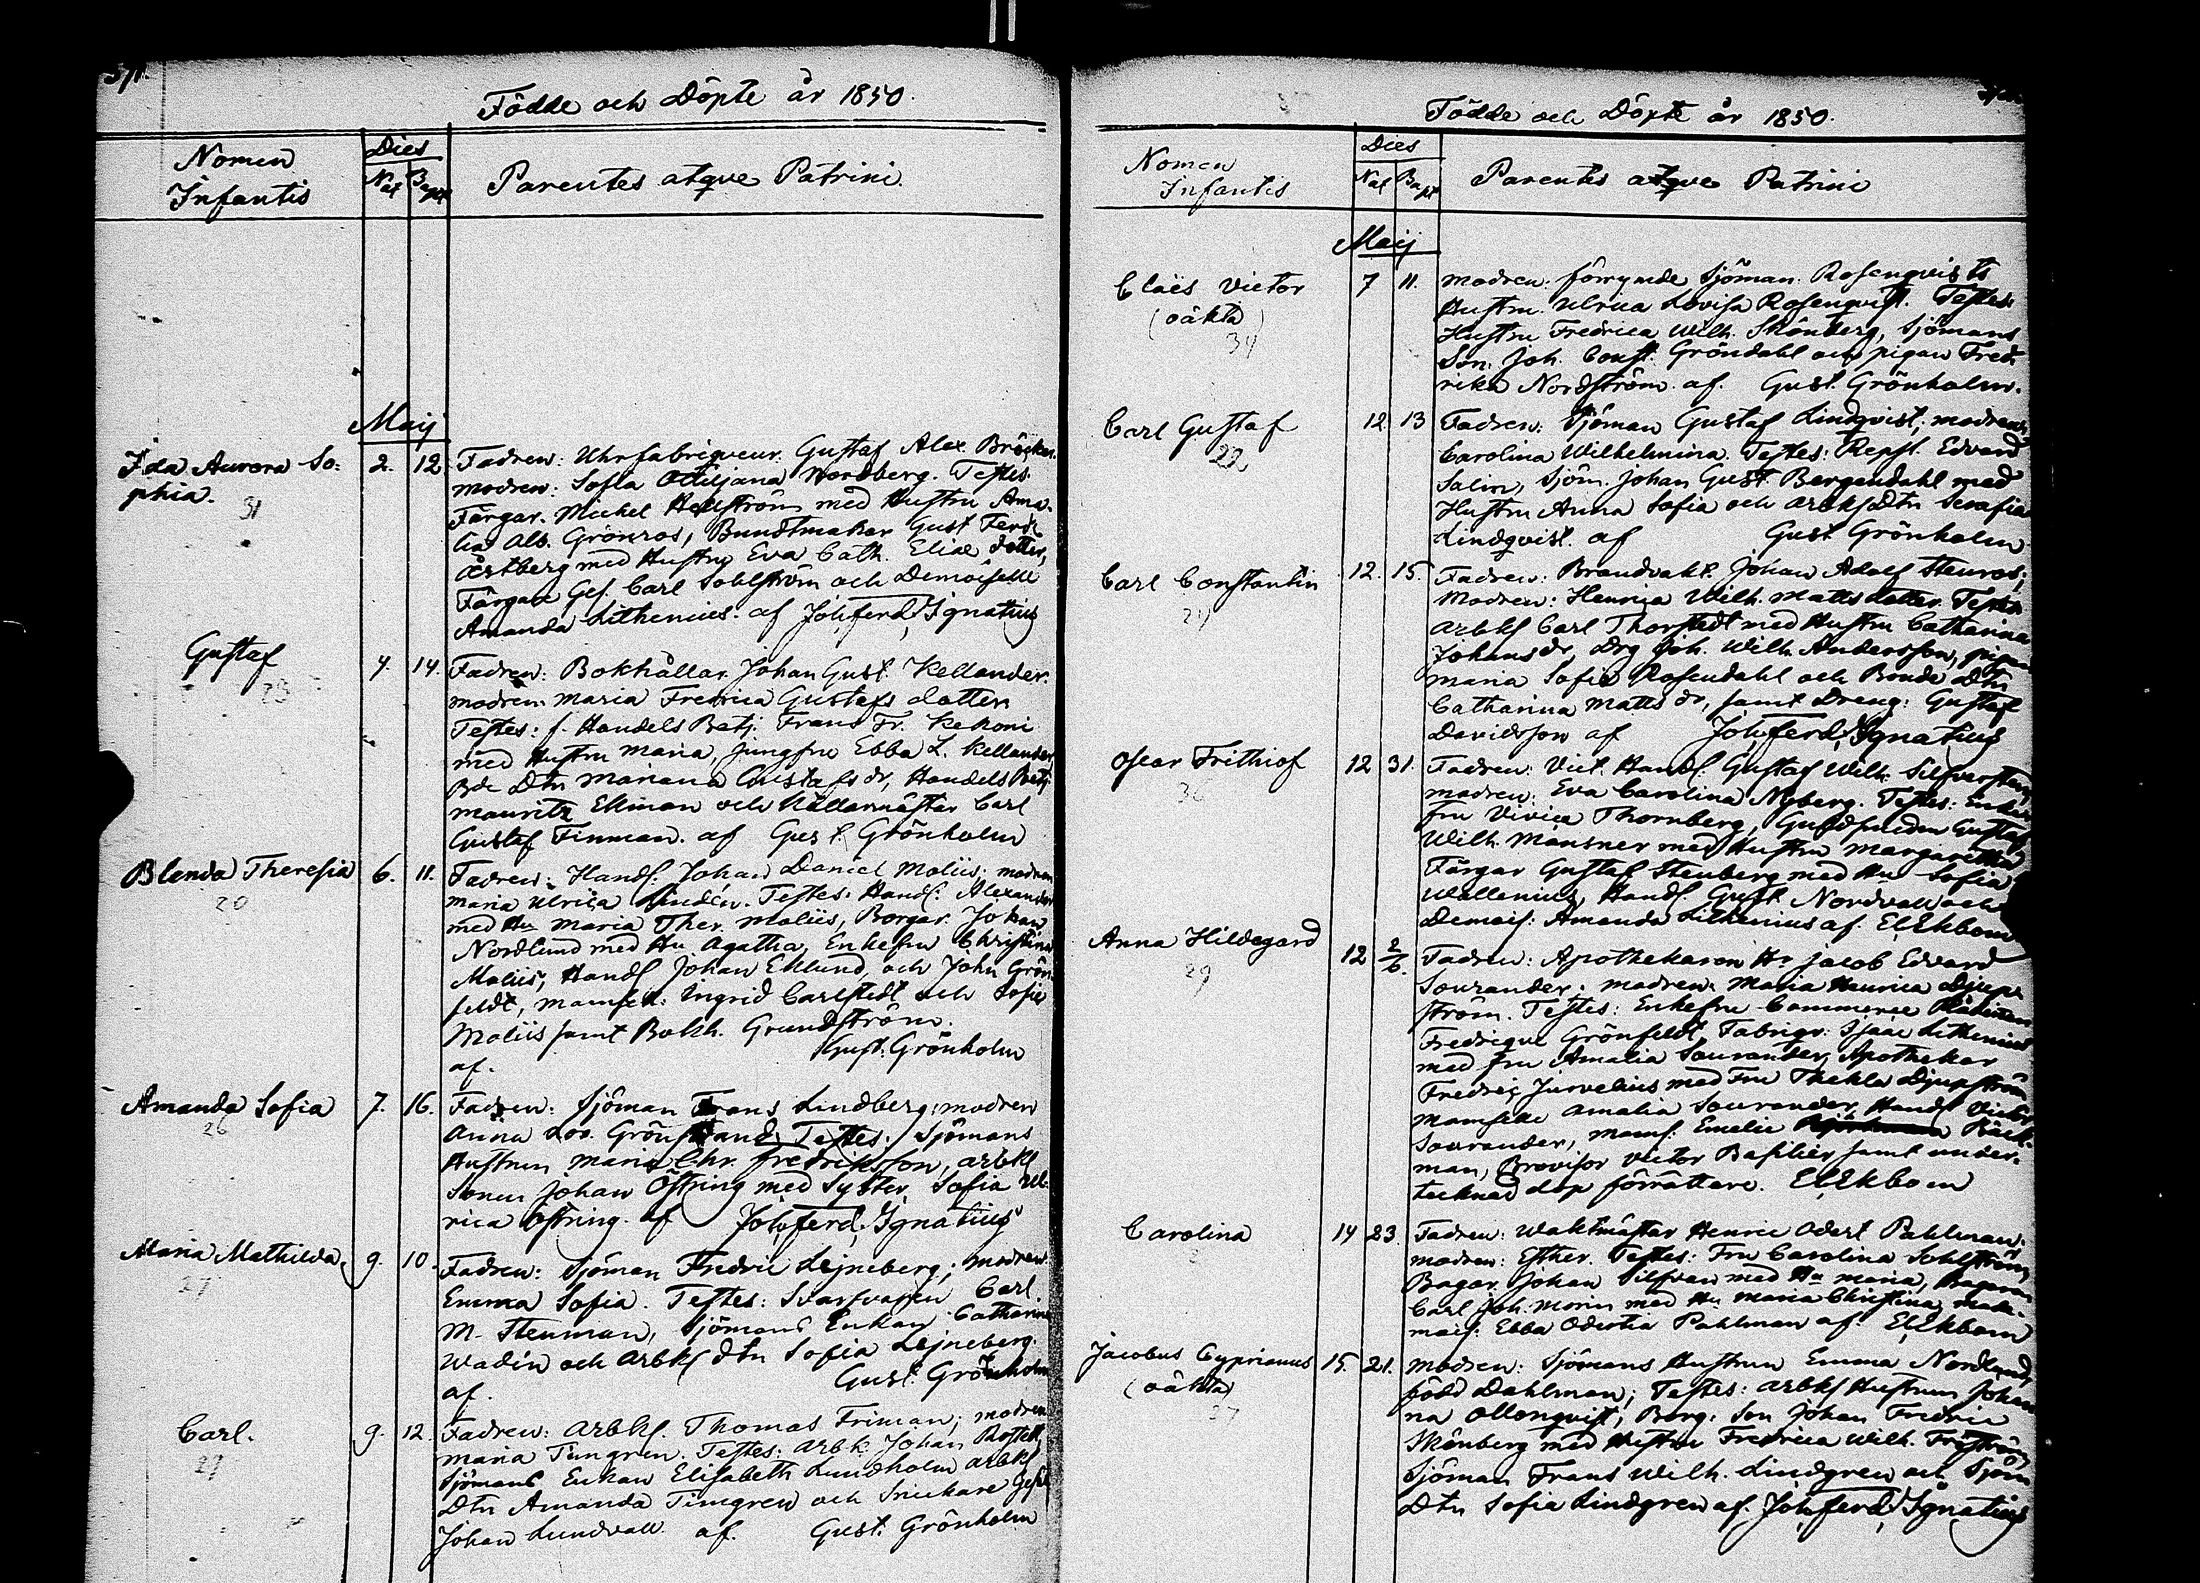 Födde och Döpte år 1850.
Nomen Infantis
Dies
Nat Bapt
Parentes atqve Patrini.
Maij
Ida Aurora So-
phia.
31
2. 12
Fadren: Uhrfabriqveur Gustaf Alex.
modren: Sofia Ottiljana Nordberg. Testes
Färgar. Mickel Hellström med Hustru Ama-
lia Alb. Grönros, Bundtmakar Gust Ferd.
Östberg med Hustru Eva Cath. Eliæ dotter,
Färgare Ges. Carl Sohlström och Demoiselle
Amanda Lithenius. af Joh. Ferd. Ignatius
Gustaf
23
4. 14.
Fadren: Bokhållar. Johan Gust. Kellander.
modren Maria Fredrica Gustafs dotter
Testes: f. Handels Betj. Frans Fr. Kekoni
med Hustru Maria, jungfru Ebba L. Kellander,
Bde Dtn Mariana Gustafs dr, Handels Betj
Mauritz Ekman och Källarmästar Carl
Gustaf Finman. af Gust. Grönholm
Blenda Theresia
20
6. 11.
Fadren: Handl. Johan Daniel Moliis. modren
Maria Ulrica Lindén. Testes: Handl. Alexander
med Hu Maria Ther. Moliis, Borgar. Johan
Nordlund med Hu Agatha, Enkefru Christina
Moliis, Handl Johan Eklund, och John Grön-
feldt, Mamsell: Ingrid Carlstedt och Sofie
Moliis samt Bokh. Grundström.
af. Gust. Grönholm
Amanda Sofia
26
7. 16.
Fadren: Sjöman Frans Lindberg; modren
Anna Lov. Grönstrand. Testes: Sjömans
Hustrun Maria Chr. Fredriksson, arbkl
Sonen Johan Östring med Syster Sofia Ul-
rica Östring. af Joh. Ferd. Ignatius
Maria Mathilda
27
9. 10.
Fadren: Sjöman Fredric Lejneberg; modren
Emma Sofia. Testes: Svarfvaren Carl
M. Stenman, Sjömans Enkan Catharina
Wadén och Arbkl dtn Sofia Lejneberg.
af. Gust. Grönholm
Carl.
9. 12.
Fadren: Arbkl. Thomas Friman; modren
Maria Timgren. Testes: Arbk. Johan
Sjömans Enkan Elisabeth Lundholm arbkl
Dtn Amanda Timgren och Snickare Gesl
Johan Lundvall. af. Gust. Grönholm
Födde och Döpte år 1850.
Nomen Infantis
Dies
Nat Bapt
Parentes atqve Patrini
Maij
Claës Victor
(oäkta)
34
7 11.
Modren: förrymde Sjöman. Rosenqvists
Hustru Ulrica Lovisa Rosenqvist. Testes:
Hustru Fredrica Wilh. Skönberg, Sjömans
Son. Joh. Const. Gröndahl och pigan Fred-
rika Nordström. af. Gust. Grönholm.
Carl Gustaf
22
12 13
Fadren: Sjöman Gustaf Lindqvist; modren:
Carolina Wilhelmina. Testes: Repsl. Edvard
Salin, Sjöm. Johan Gust. Bergendahl med
Hustru Anna Sofia och arbkl dtn Serafia
Lindqvist. af Gust Grönholm
Carl Constantin
24
12. 15.
Fadren: Brandvakt. Johan Adolf Stenros;
Modren: Henrica Wilh. Matts dotter. Testes
Arbkl Carl Thorstedt med Hustru Catharina
Johans dr, Drg Joh. Wilh. Andersson, pigan
Maria Sofia Rosendahl och Bonde Dtn
Catharina Matts dr, samt Dreng: Gustaf
Davidsson af Joh. Ferd. Ignatius
Oscar Frithiof
12 31.
Fadren: Vict. Handl. Gustaf Wilh.
modren: Eva Carolina Nyberg. Testes: Enke
fru Vivica Thornberg, Guldsmeden Gustaf
Wilh. Mansner med Hustru Margaretha
Färgar Gustaf Stenberg med Hu Sofia
Wallenius, Handl. Gust. Nordvall och
Demois. Amanda Lithenius af. E. Ekbom
Anna Hildegard
29
12 2/6.
Fadren: Apothekaren Hr Jacob Edvard
Sourander. modren. Maria Henrica Djup-
ström. Testes: Enkefru Commerce
Fredrique Grönfeldt, Fabriqr. Isaac Lithenius
med fru Amalia Sourander, Apothekar
Fredric Jurvelius med Fru Thekla Djupström
Mamselle Amalia Sourander, Handl Victor
Sourander, Mams. Emelie Käck-
man, Provisor Victor Basilier samt under-
tecknad dop förrättare. E. Ekbom
Carolina
14 23.
Fadren: Waktmäster Henric Odert Pahlman.
modren: Esther. Testes: Fru Carolina Sohlström,
Bagar Johan Silfvan med Hu Maria, Bagaren
Carl Joh. Morin med Hu Maria Christina, Made-
mois: Ebba Odertia Pahlman af: E. Ekbom
Jacobus Cyprianus
(oäkta)
27
15. 21.
Modren: Sjömans Hustrun Emma Nordlund,
född Dahlman; Testes: arbkl Hustrun Johan
na Ollonqvist, Borg. Son Johan Fredric
Skönberg med Hustru Fredrica Wilh. Friström,
Sjöman Frans Wilh. Lindgren och Sjöm
Dtn Sofia Lindgren af. Joh. Ferd. Ignatius